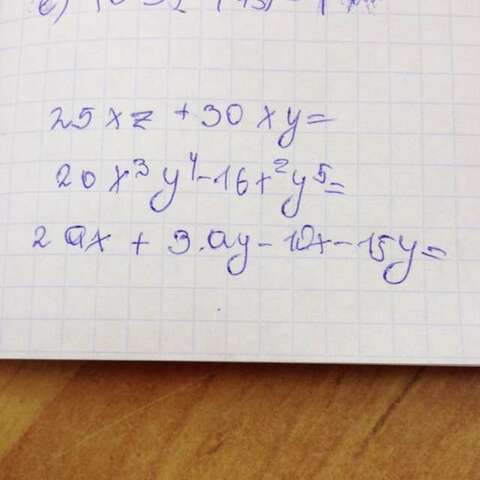 25xz + 30xy =
20x³y⁴ - 16x²y⁵ =
2ax + 3.ay - 10x - 15y =